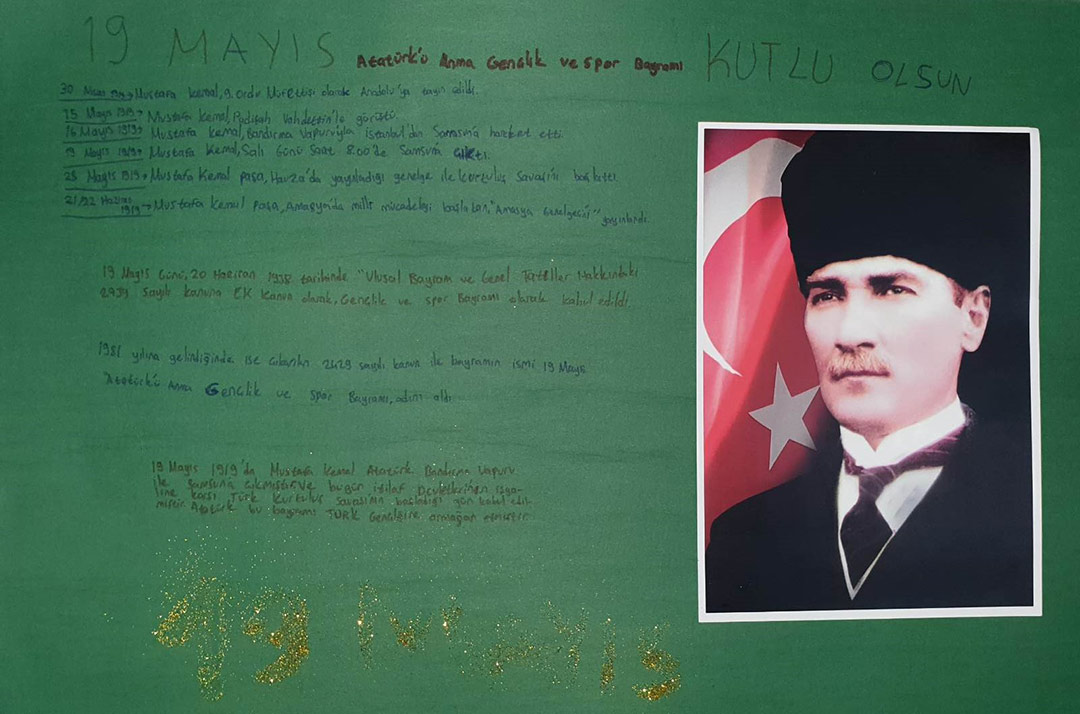 19 MAYIS Atatürk'ü Anma Gençlik ve Spor Bayramı KUTLU OLSUN
30 1919→ Mustafa Kemal, 9. Ordu Müfettişi olarak Anadolu'ya tayin edildi.
15 Mayıs 1919→ Mustafa Kemal, Padişah Vahdettin'le görüştü.
16 Mayıs 1919→ Mustafa Kemal, Bandırma Vapuruyla istanbul'dan Samsun'a hareket etti.
19 Mayıs 1919→ Mustafa Kemal, Salı Günü Saat 8.00'de Samsun'a çıktı.
28 Mayıs 1919→ Mustafa Kemal paşa, Havza'da yayınladığı genelge ile kurtuluş savaşını başlattı.
21/22 Haziran 1919→ Mustafa Kemal paşa, Amasya'da milli mücadeleyi başlatan, "Amasya Genelgesi'ni" yayınlandı.
19 Mayıs Günü, 20 Haziran 1938 tarihinde "Ulusal Bayram ve Genel Tatiller Hakkındaki
2739 Sayılı kanuna EK kanun olarak, Gençlik ve spor Bayramı olarak kabul edildi.
1981 yılına gelindiğinde ise çıkarılan 2429 sayılı kanun ile bayramın ismi 19 Mayıs
Atatürk'ü Anma Gençlik ve Spor Bayramı, adını aldı
19 Mayıs 1919'da Mustafa Kemal Atatürk Bandırma Vapuru
ile Samsuna çıkmıştır ve bugün itilaf Devletlerinin işga-
line karşı Türk Kurtuluş savaşının başladığı gün kabul edil-
miştir. Atatürk bu bayramı TÜRK Gençliğine armağan etmiştir.
19 MAYIS